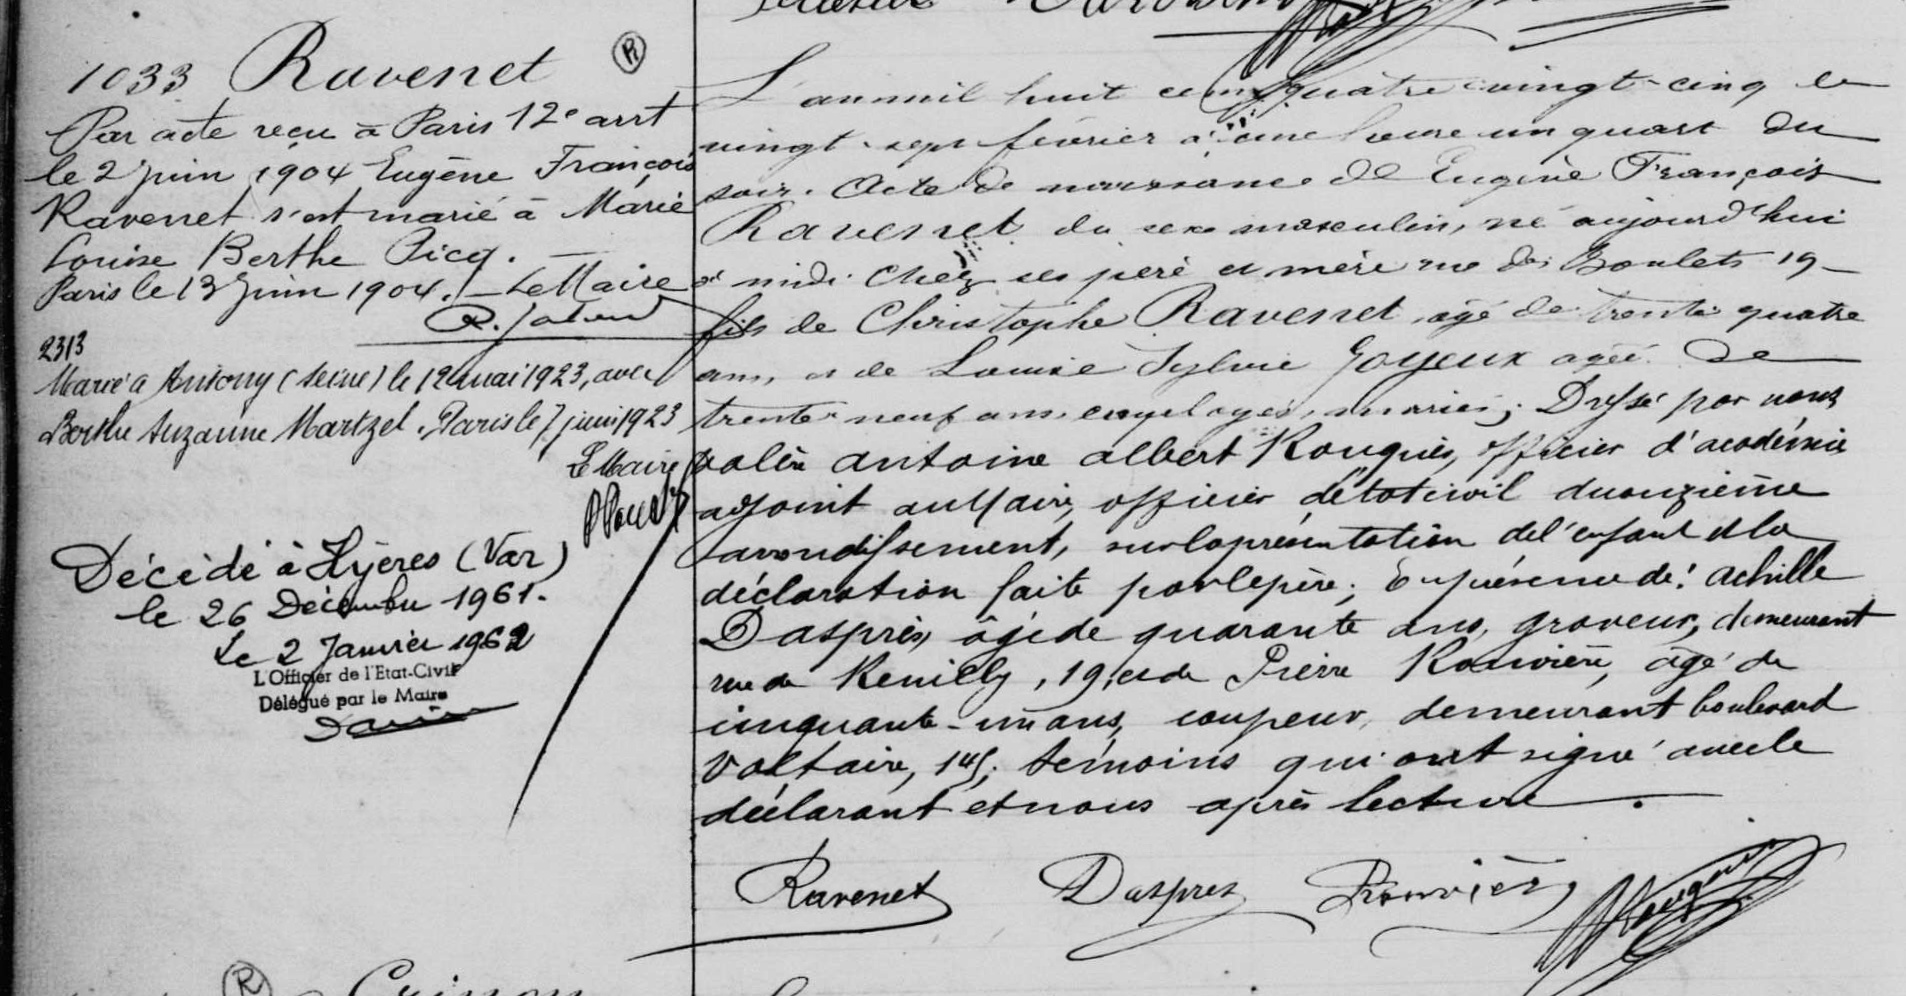 1033 Ravenet
R
Par acte reçu à Paris 12e arrt
le 2 juin 1904 Eugène François
Ravenet s'est marié à Marie
Louise Berthe Picq.
Paris le 13 Juin 1904. Le Maire
2313
Marié à Antony (Seine) le 12 mai 1923, avec
Berthe Suzanne Martzel. Paris le 7 juin 1923
Le Maire
Décédé à Hyères (Var)
le 26 Décembre 1961.
Le 2 Janvier 1962
L'Officier de l'Etat-Civil
Délégué par le Maire
L'an mil huit cent quatre vingt-cinq le
vingt-sept février à une heure un quart du
soir. Acte de naissance de Eugène François
Ravenet du sexe masculin, né aujourd'hui
à midi chez ses père et mère rue des Boulets 19
fils de Christophe Ravenet, âgé de trente quatre
ans, et de Louise Sylvie Joyeux âgée de
trente-neuf ans employés, mariés; Dressé par nous
Valère Antoine Albert Rouguès, officier d'académie
adjoint au Maire, officier de l'état civil du onzième
arrondissement, sur la présentation de l'enfant et la
déclaration faite par le père; En présence de: Achille
Dasprès, âgé de quarante ans, graveur, demeurant
rue de Reuilly, 19, et de Pierre Rouvière, âgé de
cinquante-un ans, coupeur, demeurant boulevard
Voltaire, 145; témoins qui ont signé avec le
déclarant et nous après lecture.
Ravenet Daspres Rouvière
R